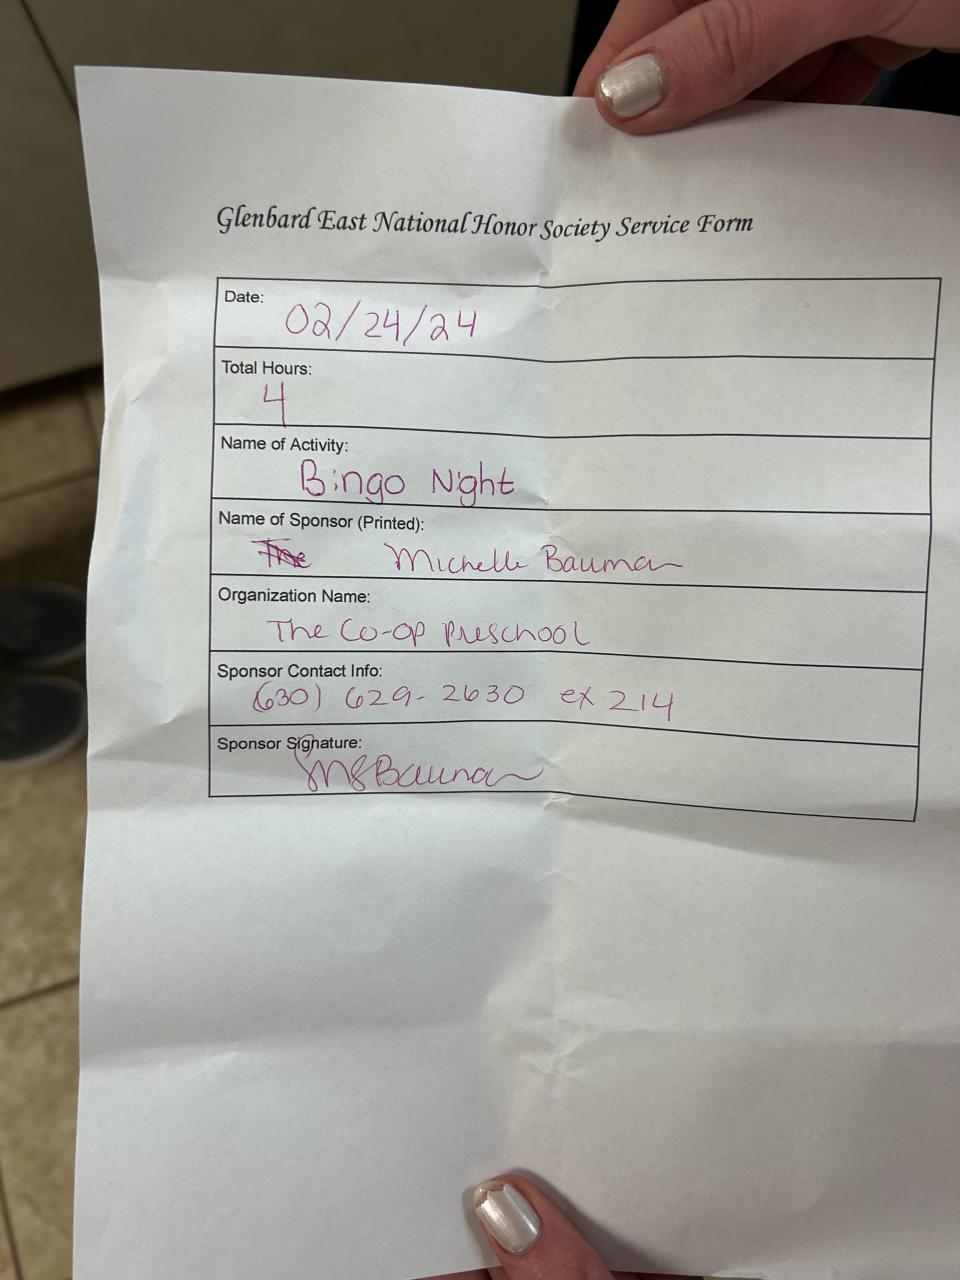 Glenbard East National Honor Society Service Form
Date:
02/24/24
Total Hours:
4
Name of Activity:
Bingo Night
Name of Sponsor (Printed):
The Michelle Bauman
Organization Name:
The Co-op Preschool
Sponsor Contact Info:
(630) 629-2630 ex 214
Sponsor Signature:
MSBauman